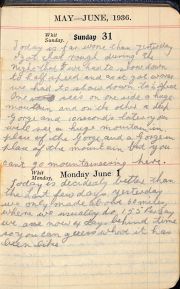 MAY—JUNE, 1936.
Whit Sunday. Sunday 31
Today is far worse than yesterday
It got that rough during the
night that we had to slow down
to half speed and as it got worse
we had to slow down to slow
One on one side a huge
mountain and on the other a deep
Gorge and seconds later you
will see a huge mountain in
place of the Gorge and a Gorge in
place of the mountain but you
can't go mountaineering here.
Whit Monday. Monday June 1
Today is decidedly better than
the last few days. Yesterday
we only made miles,
where we usually do 155 Today
we are now 2 days behind time
so you can guess what it has
been like.